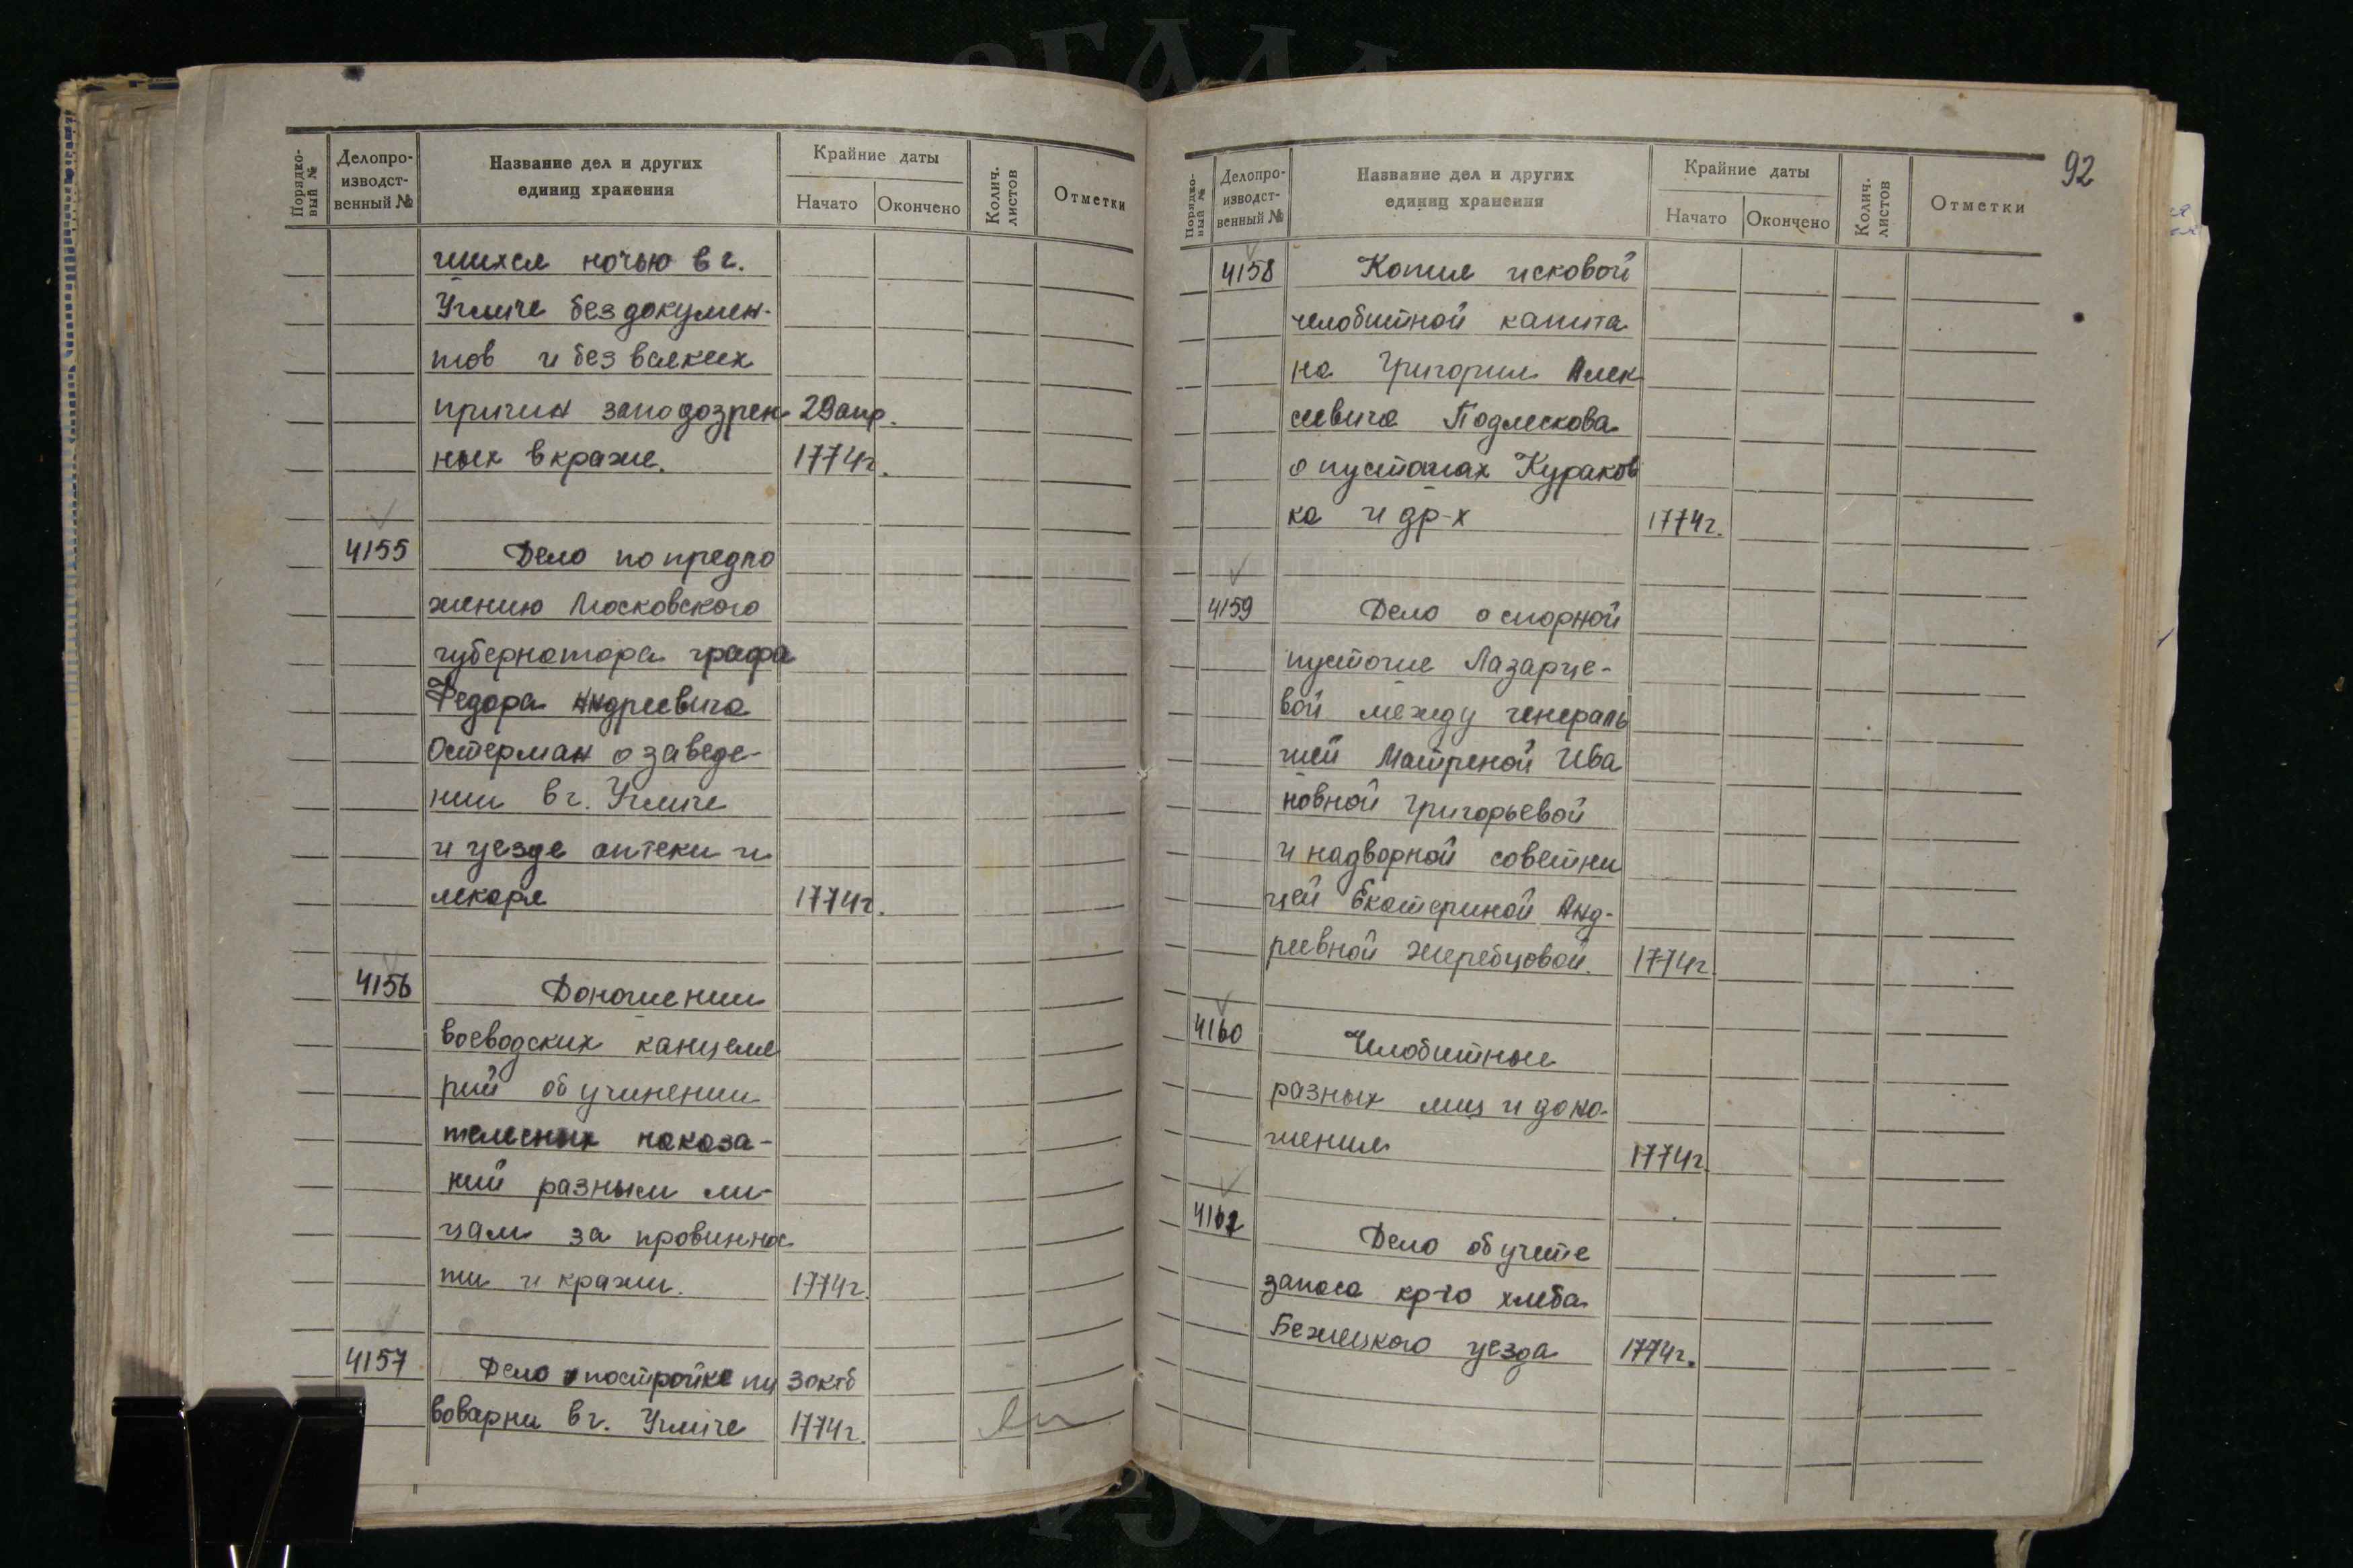 Порядко-
вый №
Делопро-
изводст-
венный №
Название дел и других
единиц хранения
Крайние даты
Начато
Окончено
Колич.
листов
Отметки
шихся ночью в г.
Угличе без докумен-
тов и без всяких
причин заподозрен- 29 апр.
ных в краже. 1774г.
4155 Дело по предло
жению Московского
губернатора графа
Федора Андреевича
Остерман о заведе-
нии в г. Угличе
и уезде аптеки и
лекаря 1774г.
4156 Доношении
воеводских канцеля
рий об учинении
телесных наказа-
ний разным ли-
цам за провиннос
ти и кражи. 1774г.
4157 Дело о постройке пи 3 октб
воварни в г. Угличе 1774г.
92
Порядко-
вый №
Делопро-
изводст-
венный №
Название дел и других
единиц хранения
Крайние даты
Начато
Окончено
Колич.
листов
Отметки
4158 Копия исковой
челобитной капита
на Григория Алек
сеевича Подлескова
о пустошах Кураков
ка и др-х 1774г.
4159 Дело о спорной
пустоше Лазарце-
вой между генераль
шей Матреной Ива
новной Григорьевой
и надворной советни
цей Екатериной Анд-
реевной Жеребцовой. 1774г.
4160 Челобитные
разных лиц и доно-
шения 1774г.
Дело об учете
запаса кр-го хлеба
Бежецкого уезда 1774г.